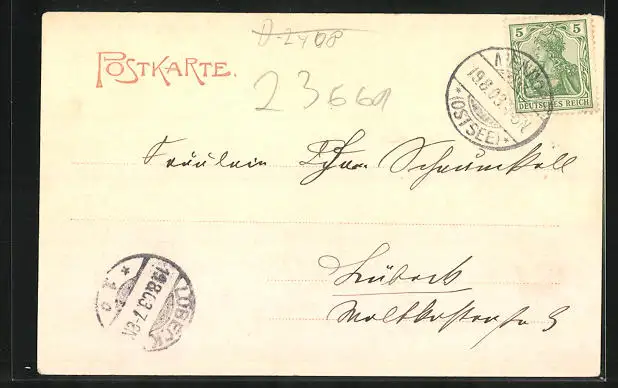 D-2408
POSTKARTE.
23661
5 5
DEUTSCHES REICH
19.8.03
*(OSTSEE)*
Fräulein
Lübeck
Moltkestrasse 9
LÜBECK
19.8.03.7-8N.
* 1 o